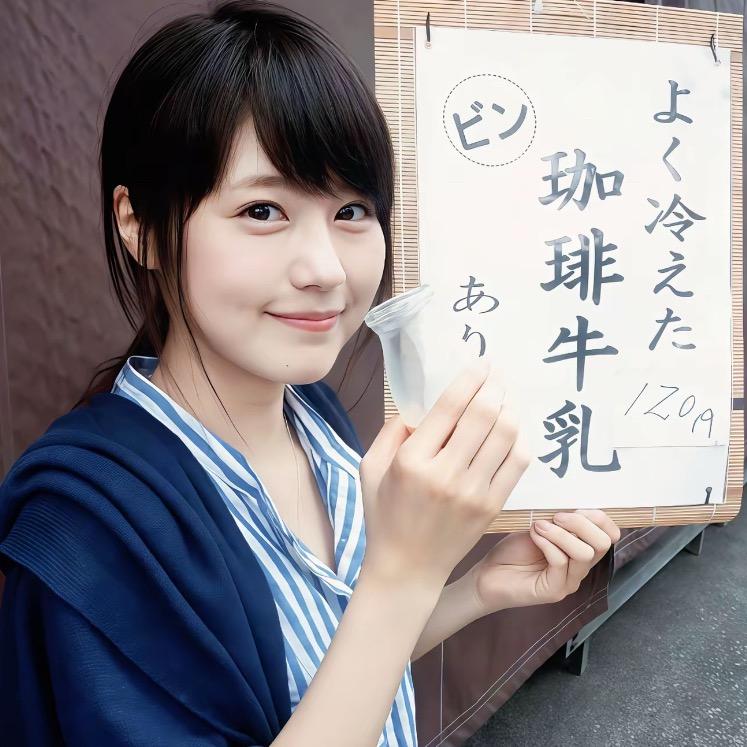 よく冷えた
珈琲牛乳
ビン
あり
120円